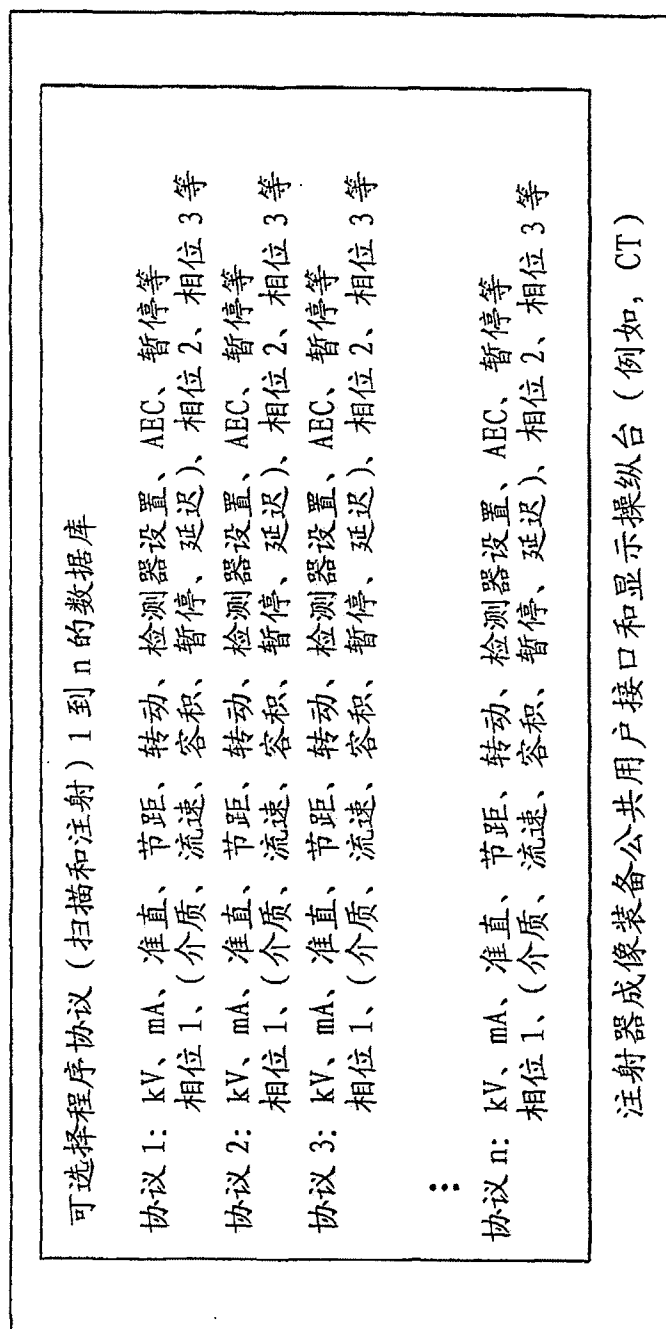 可选择程序协议（扫描和注射）1到n的数据库
协议1: kV、mA、准直、节距、转动、检测器设置、AEC、暂停等
相位1、(介质、流速、容积、暂停、延迟)、相位2、相位3等
协议2: kV、mA、准直、节距、转动、检测器设置、AEC、暂停等
相位1、(介质、流速、容积、暂停、延迟)、相位2、相位3等
协议3: kV、mA、准直、节距、转动、检测器设置、AEC、暂停等
相位1、(介质、流速、容积、暂停、延迟)、相位2、相位3等
⋮
协议n: kV、mA、准直、节距、转动、检测器设置、AEC、暂停等
相位1、(介质、流速、容积、暂停、延迟)、相位2、相位3等
注射器成像装备公共用户接口和显示操纵台（例如，CT）